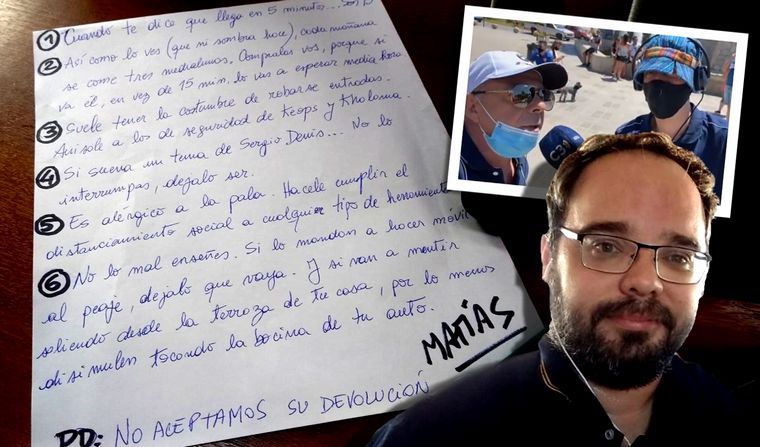 ① Cuando te dice que llega en 5 minutos... son
② Así como lo ves (que ni sombra hace), cada mañana
se come tres medialunas. Compralas vos, porque si
va él, en vez de 15 min. lo vas a esperar media hora.
③ Suele tener la costumbre de robarse entradas.
Avisale a los de seguridad de Keops y Kholoma.
④ Si suena un tema de Sergio Denis... No lo
interrumpas, dejalo ser.
⑤ Es alérgico a la pala. Hacele cumplir el
distanciamiento social a cualquier tipo de herramienta
⑥ No lo mal enseñes. Si lo mandan a hacer móvil
al peaje, dejalo que vaya. Y si van a mentir
saliendo desde la terraza de tu casa, por lo menos
disimulen tocando la bocina de tu auto.
MATÍAS
PD: NO ACEPTAMOS SU DEVOLUCIÓN
C3N